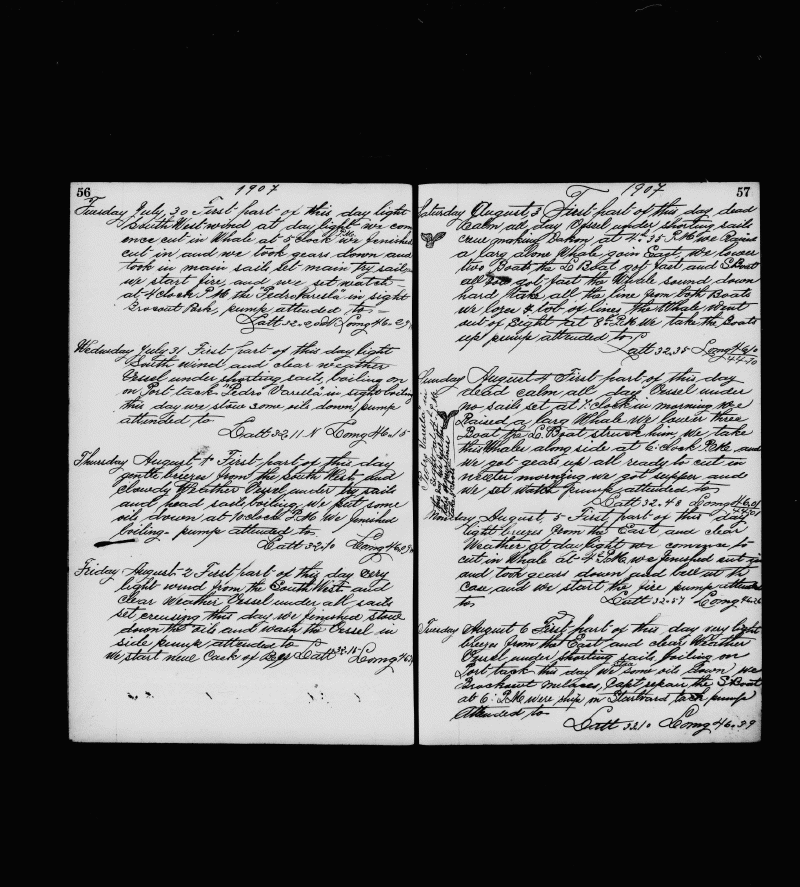 56
1907
Tuesday July 30 First part of this day light
South West wind at day light we com
ence cut in Whale at 5 clock we finished
cut in and we took gears down and
took in main sails set main try sail
we start fire, and we set watch
at 4 clock P.M. the "Pedro Varela" in sight
pump attended to
Latt 32.20 N Long 46.29
Wednesday July 31 First part of this day light
South wind and clear weather
Vessel under shorting sails, boiling on
on Port tack "Pedro Varela" in sight boiling
this day we stow some oils down, pump
attended to
Latt 32.11 N Long 46.15
Thursday August 1st First part of this day
gentle breezes from the South West and
cloudy Weather Vessel under try sails
and head sails boiling we put some
oils down at 10 clock P.M. We finished
boiling. pump attended to.
Latt 32.10 Long 46.09
Friday August 2 First part of this day very
light wind from the South West and
clear Weather Vessel under all sails
set creusing this day we finished stow
down the oils and wash the Vessel in
side pump attended to
We start neue Cask of Latt 32.15 Long 46
57
1907
Saturday August 3 First part of this day dead
Calm all day Vessel under shorting sails
crue making at 4.35 P.M. we Raised
a larg alone Whale goin East, we lower
two Boats the L Boat got fast and S Boat
all so got fast the Whale sound down
hard take all the line from both Boats
we loose a lot of lines the Whale Went
out of Sight at 8 P.M. We take the Boats
up. pump attended to
Latt 32.35 Long 46.10
Sunday August 4 First part of this day
dead calm all day Vessel under
no sails set at 7 clock in morning we
Raised a larg Whale we lower three
Boat the L Boat struck him, we take
this Whale along side at 6 clock P.M. and
we got gears up all ready to cut in
morning we got supper and
we set Watch pump attended to
Latt 32.48 Long 46.01
Monday August 5 First part of this day
light breezes from the East and clear
Weather at day light we comence to
cut in Whale at 4 P.M. we finished cut in
and took gears down and bail at th
Case and we start the fire pump attended
to.
Latt 32.57 Long 46.26
Tuesday August 6 First part of this day very light
breezes from the East and clear Weather
Vessel under shorting sails, boiling on
Port tack this day we some oil down, we
Capt repair the S Boat
at 6. P.M. were ship on Starbord tack pump
Attended to
Latt 32.10 Long 46.39